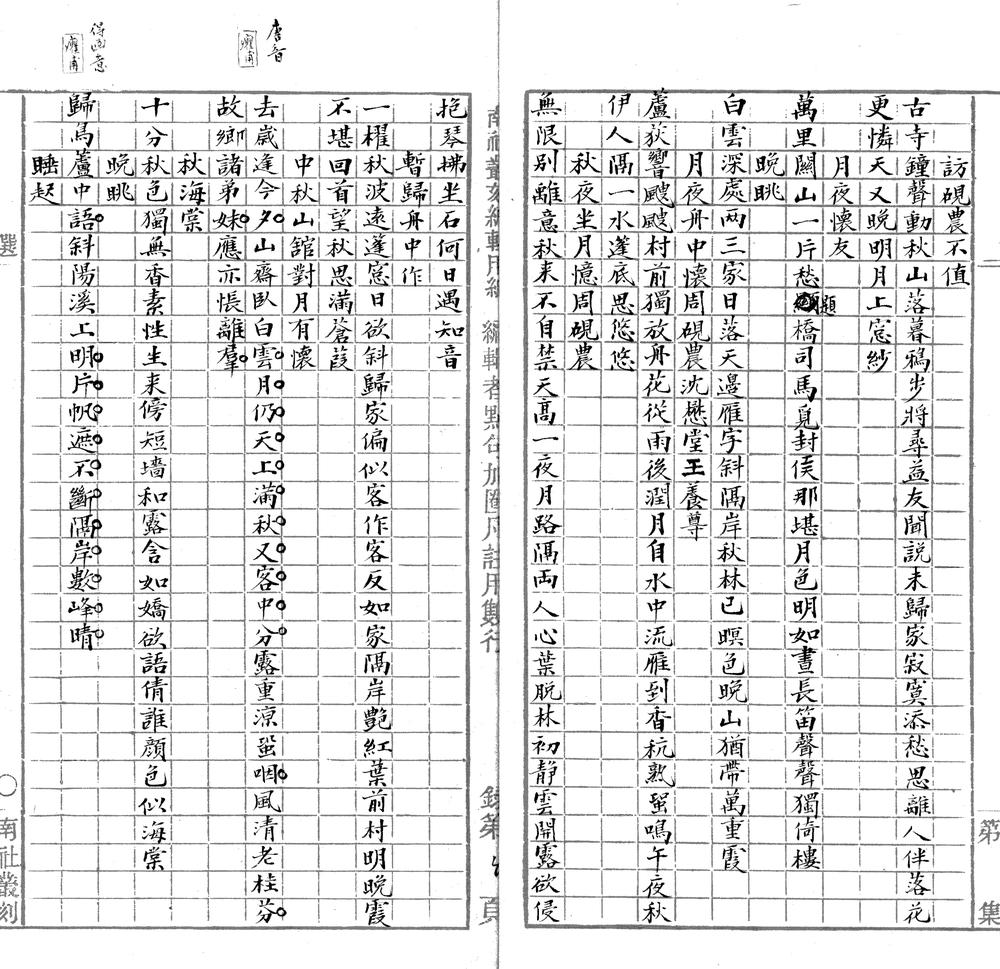 第
集
二
訪硯農不值
古寺鐘聲動秋山落暮鴉步將尋益友聞説未歸家寂寞添愁思離人伴落花
更憐天又晚明月上窓紗
月夜懷友
萬里關山一片愁題橋司馬覓封侯那堪月色明如晝長笛聲聲獨倚樓
晚眺
白雲深處兩三家日落天邊雁字斜隔岸秋林已暝色晚山猶帶萬重霞
月夜舟中懷周硯農沈懋堂王養尊
蘆荻響颼颼村前獨放舟花從雨後潤月自水中流雁到香秔熟蛩鳴午夜秋
伊人隔一水蓬底思悠悠
秋夜坐月憶周硯農
無限別離意秋来不自禁天高一夜月路隔両人心葉脱林初静雲開露欲侵
南社叢刻編輯用紙
編輯者點句加圈凡註用雙行
錄第
頁
抱琴拂坐石何日遇知音
暫歸舟中作
一櫂秋波遠蓬窓日欲斜歸家偏似客作客反如家隔岸艷紅葉前村明晚霞
不堪回首望秋思滿蒼葭
中秋山館對月有懷
唐音
去歲逢今夕山齋臥白雲月仍天上滿秋又客中分露重涼蛩咽風清老桂芬
故鄉諸弟妹應亦悵離羣
秋海棠
十分秋色獨無香素性生来傍短墻和露含如嬌欲語倩誰顔色似海棠
晚眺
得画意
歸鳥蘆中語斜陽溪上明片帆遮不斷隔岸數峰晴
睡起
選
南社叢刻